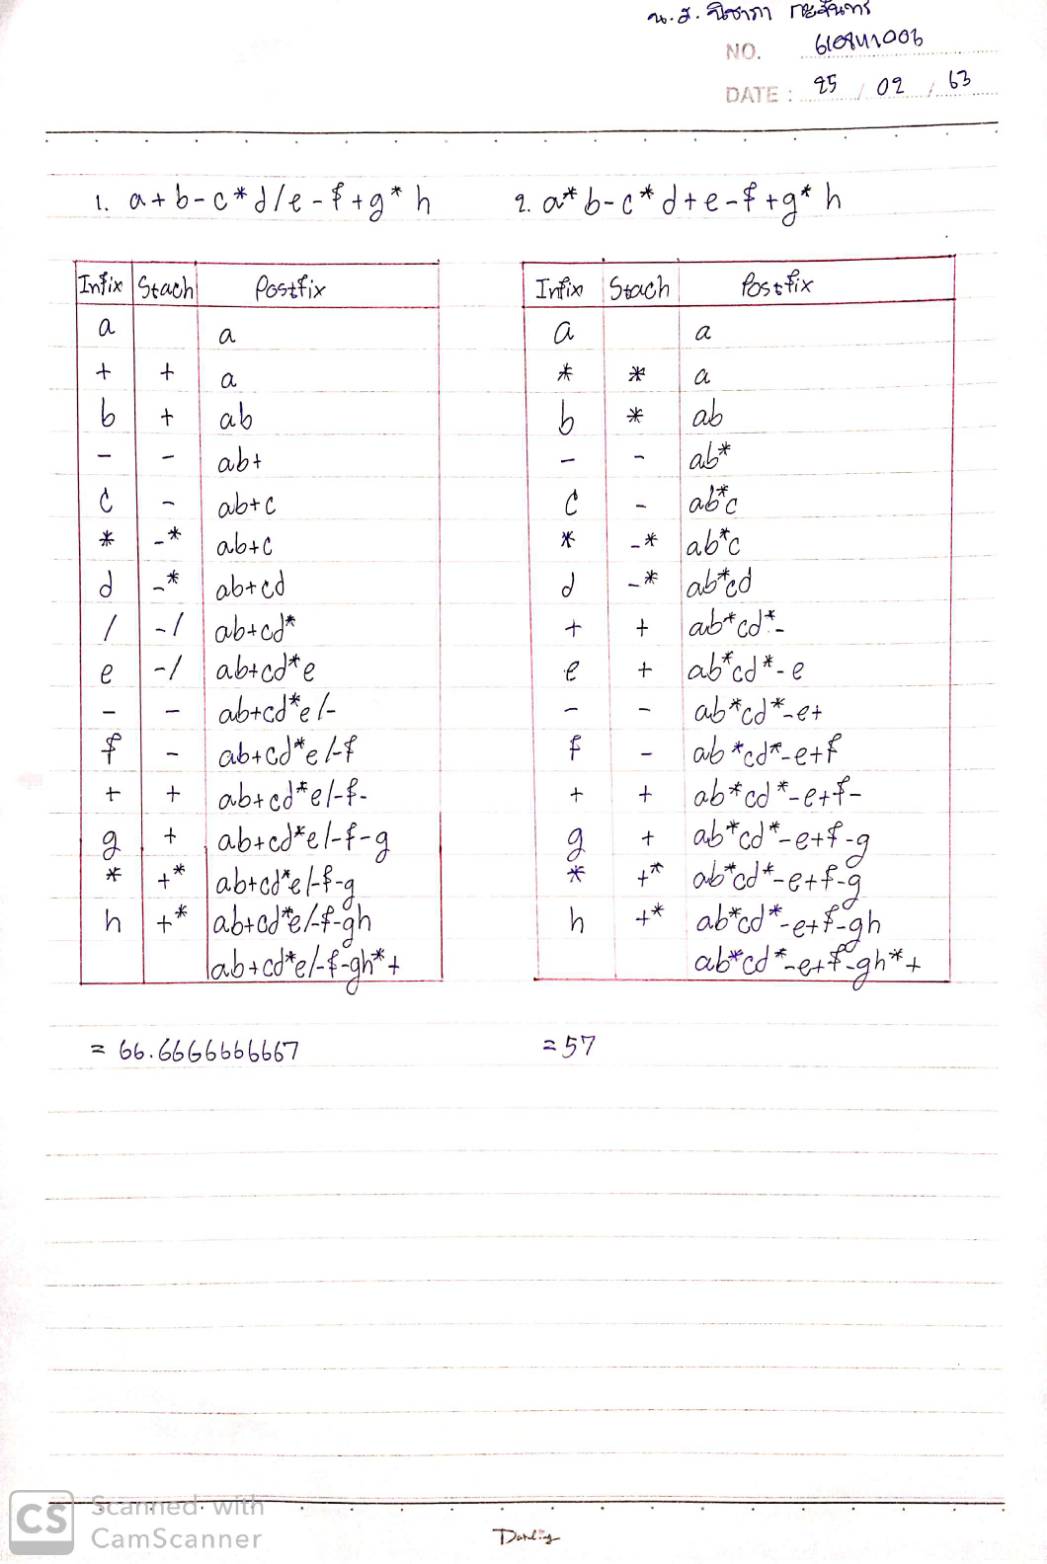 น.ส. นิชาภา กะจันทร์
NO.
DATE : 25 / 02 / 63
1. a+b-c*d/e-f+g*h
2. a*b-c*d+e-f+g*h
Infix Stach Postfix
a a
+ + a
b + ab
- - ab+
c - ab+c
* -* ab+c
d -* ab+cd
/ -/ ab+cd*
e -/ ab+cd*e
- - ab+cd*e/-
f - ab+cd*e/-f
+ + ab+cd*e/-f-
g + ab+cd*e/-f-g
* +* ab+cd*e/-f-g
h +* ab+cd*e/-f-gh
ab+cd*e/-f-gh*+
= 66.6666666667
Infix Stach Postfix
a a
* * a
b * ab
- - ab*
c - ab*c
* -* ab*c
d -* ab*cd
+ + ab*cd*-
e + ab*cd*-e
- - ab*cd*-e+
f - ab*cd*-e+f
+ + ab*cd*-e+f-
g + ab*cd*-e+f-g
* +* ab*cd*-e+f-g
h +* ab*cd*-e+f-gh
ab*cd*-e+f-gh*+
= 57
CS Scanned with
CamScanner
Darling